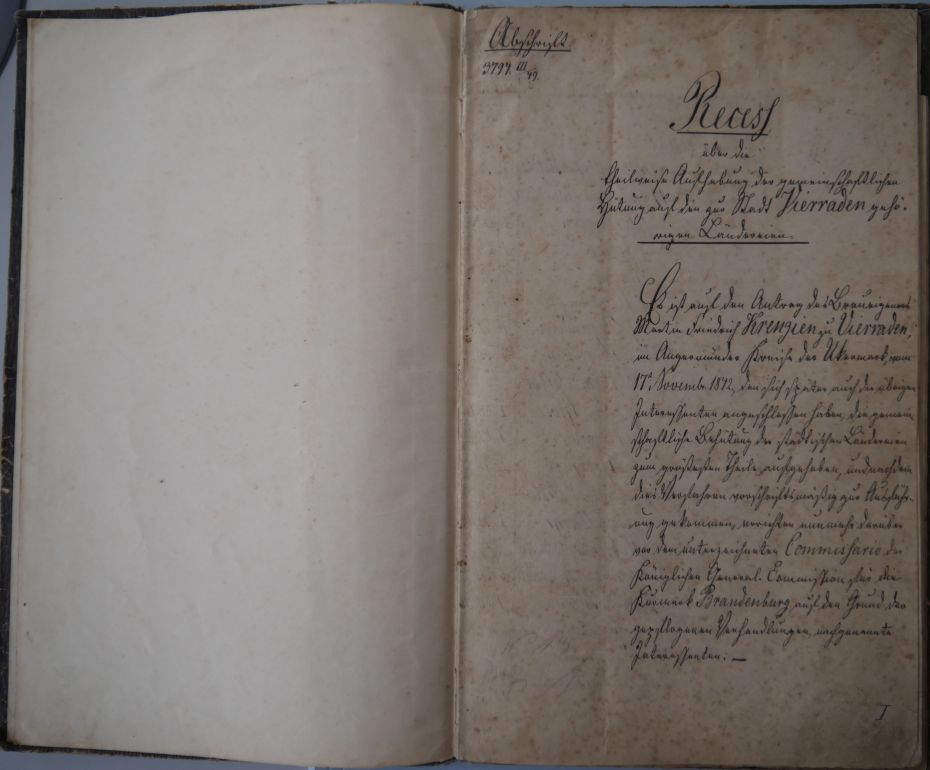 Abschrift
3797. III/49.
Recess
über die
theilweise Aufhebung der gemeinschaftlichen
Hütung auf den zur Stadt Vierraden gehö-
rigen Ländereien.
Es ist auf den Antrag des Braueigners
Martin Friedrich Krenzien zu Vierraden,
im Angermünder Kreise der Ukermark, vom
17t Novembr. 1812, dem sich später auch die übrigen
Interessenten angeschlossen haben, die gemein-
schaftliche Behütung der städtischen Ländereien
zum größesten Theile aufgehoben, und nachdem
dies Verfahren vorschriftsmäßig zur Ausfüh-
rung gekommen, errichten nunmehr darüber
vor dem unterzeichneten Commissario der
Königlichen General-Commission für die
Kurmark Brandenburg, auf den Grund der
gepflogenen Verhandlungen, nachgenannte
Interessenten: —
I